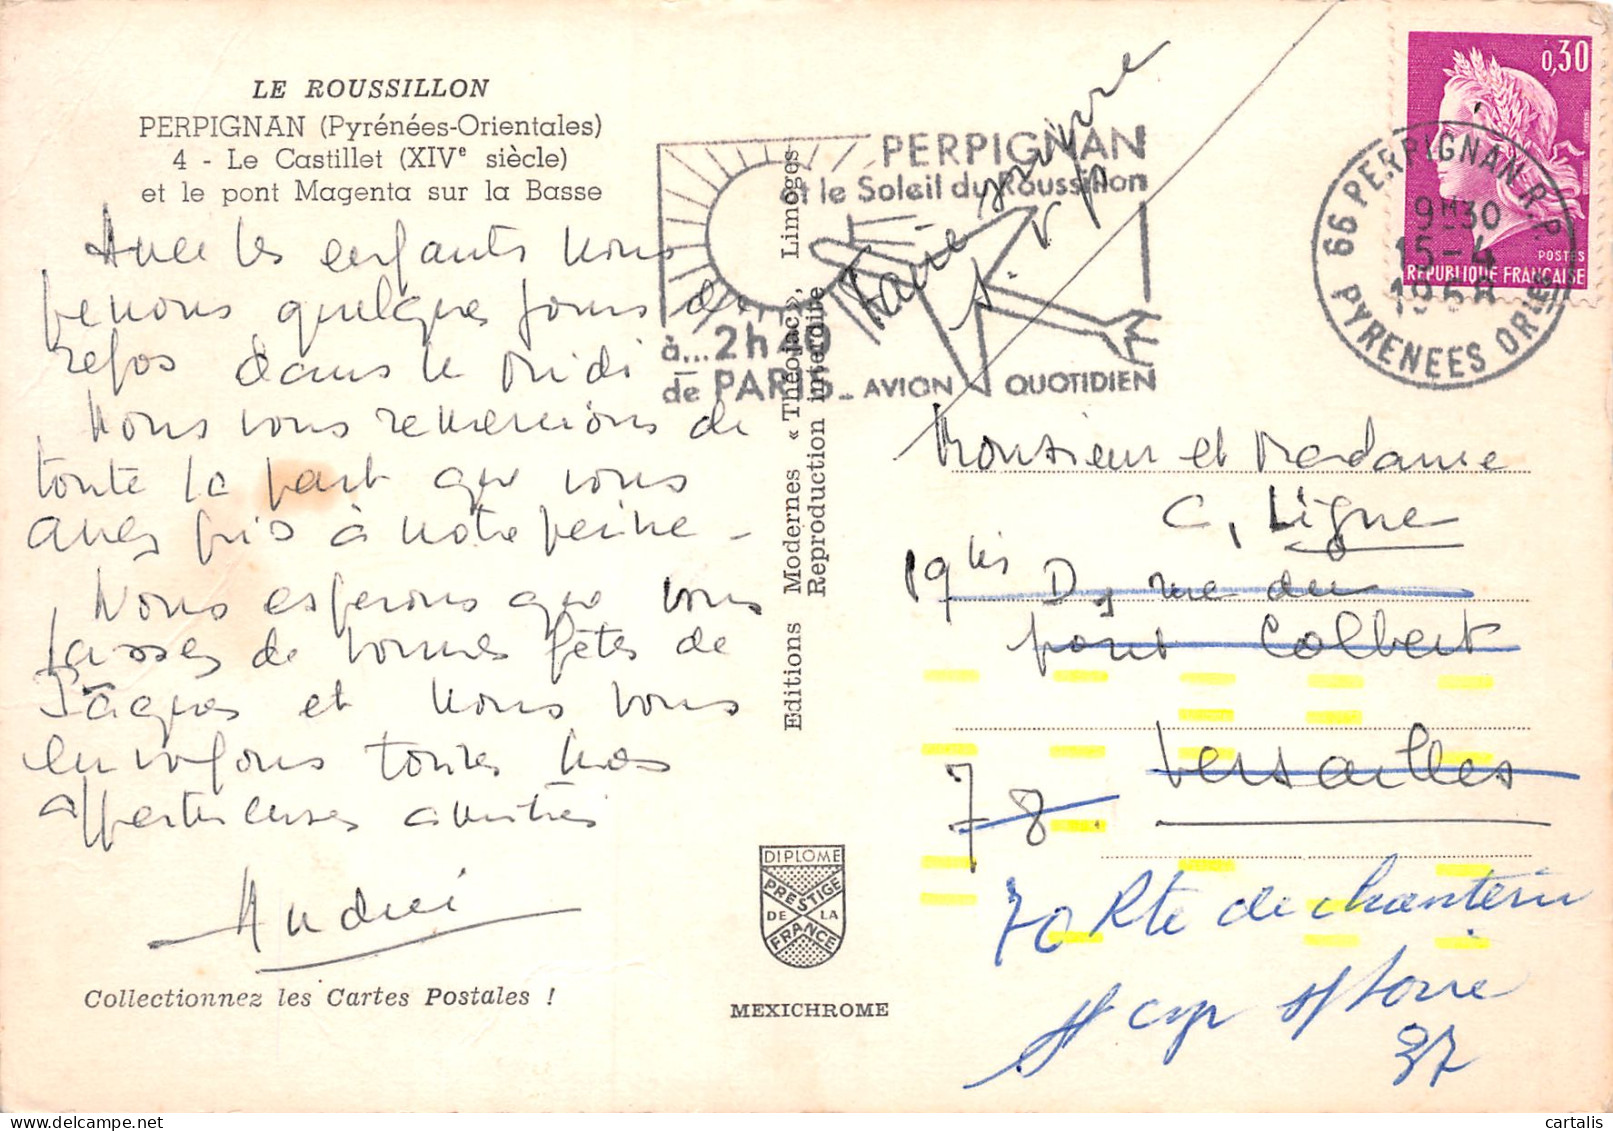 LE ROUSSILLON
PERPIGNAN (Pyrénées-Orientales)
4 - Le Castillet (XIVe siècle)
et le pont Magenta sur la Basse
Avec les enfants nous
penons quelques jours de
repos dans le Midi
Nous vous remercions de
toute la part que vous
avez pris à notre peine -
Nous esperons que vous
passez de bonnes fêtes de
Pâques et nous vous
envoyons toutes nos
affectueuses amitiés
André
Collectionnez les Cartes Postales !
Editions Modernes « Théojac », Limoges
Reproduction interdite
DIPLOME
PRESTIGE
DE LA
FRANCE
MEXICHROME
PERPIGNAN
et le Soleil du Roussillon
à... 2h40
de PARIS - AVION QUOTIDIEN
Faire suivre
S. V. P
0,30
POSTES
REPUBLIQUE FRANCAISE
66 PERPIGNAN R.P.
9H30
15-4
1968
PYRENEES ORIES
Monsieur et Madame
C, Ligne
19bis D, rue du
pont Colbert
Versailles
78
70 Rte de
St Cyr s/ Loire
37
cartalis